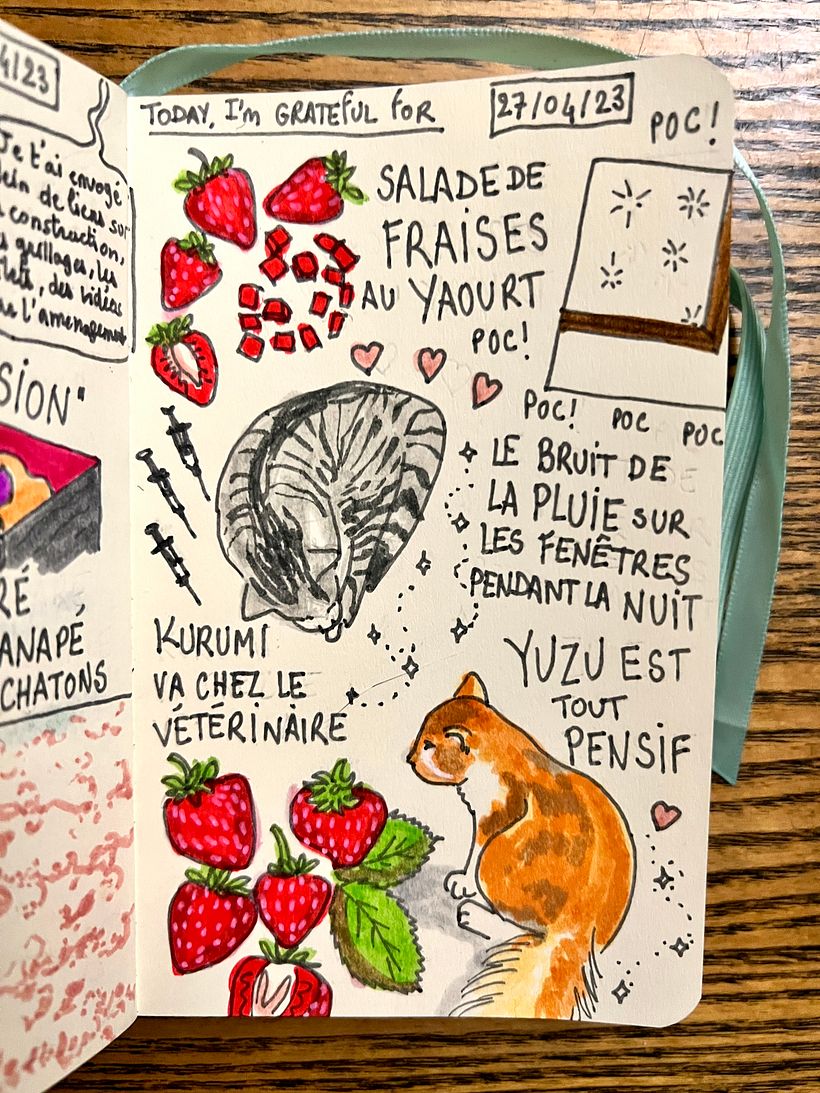 4/23
Je t'ai envoyé
de liens sur
construction,
grillages, les
des vidéos
l'aménagement
SION"
RÉ
ANAPÉ
CHATONS
TODAY, I'm GRATEFUL FOR
27/04/23
POC!
SALADE DE
FRAISES
AU YAOURT
POC!
POC!
POC
POC
LE BRUIT DE
LA PLUIE SUR
LES FENÊTRES
PENDANT LA NUIT
KURUMI
VA CHEZ LE
VÉTÉRINAIRE
YUZU EST
TOUT
PENSIF